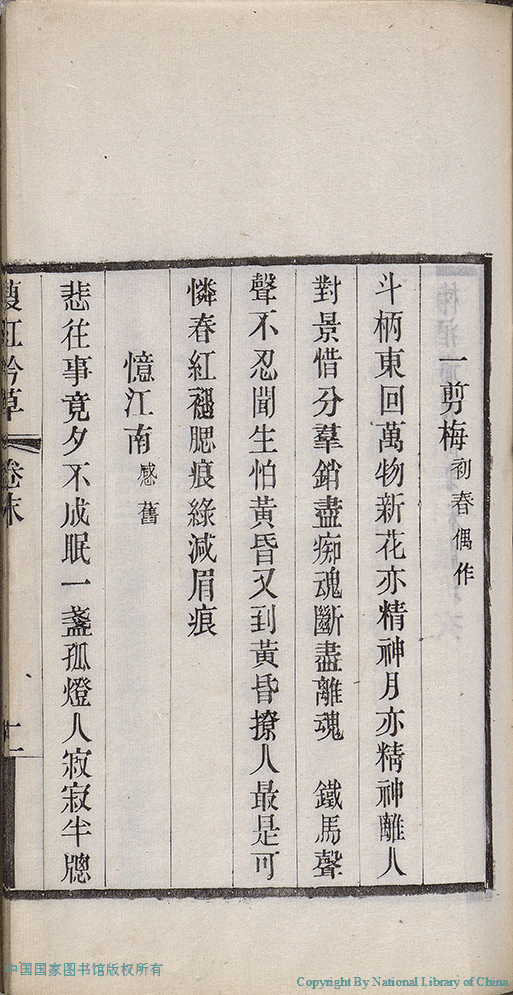 一剪梅 初春偶作
斗柄東回萬物新花亦精神月亦精神離人
對景惜分羣銷盡痴魂斷盡離魂 鐵馬聲
聲不忍聞生怕黃昏又到黃昏撩人最是可
憐春紅褪腮痕綠減眉痕
憶江南 感舊
悲往事竟夕不成眠一盞孤燈人寂寂半牕
紅吟草 卷末
中国国家图书馆版权所有
Copyright By National Library of China